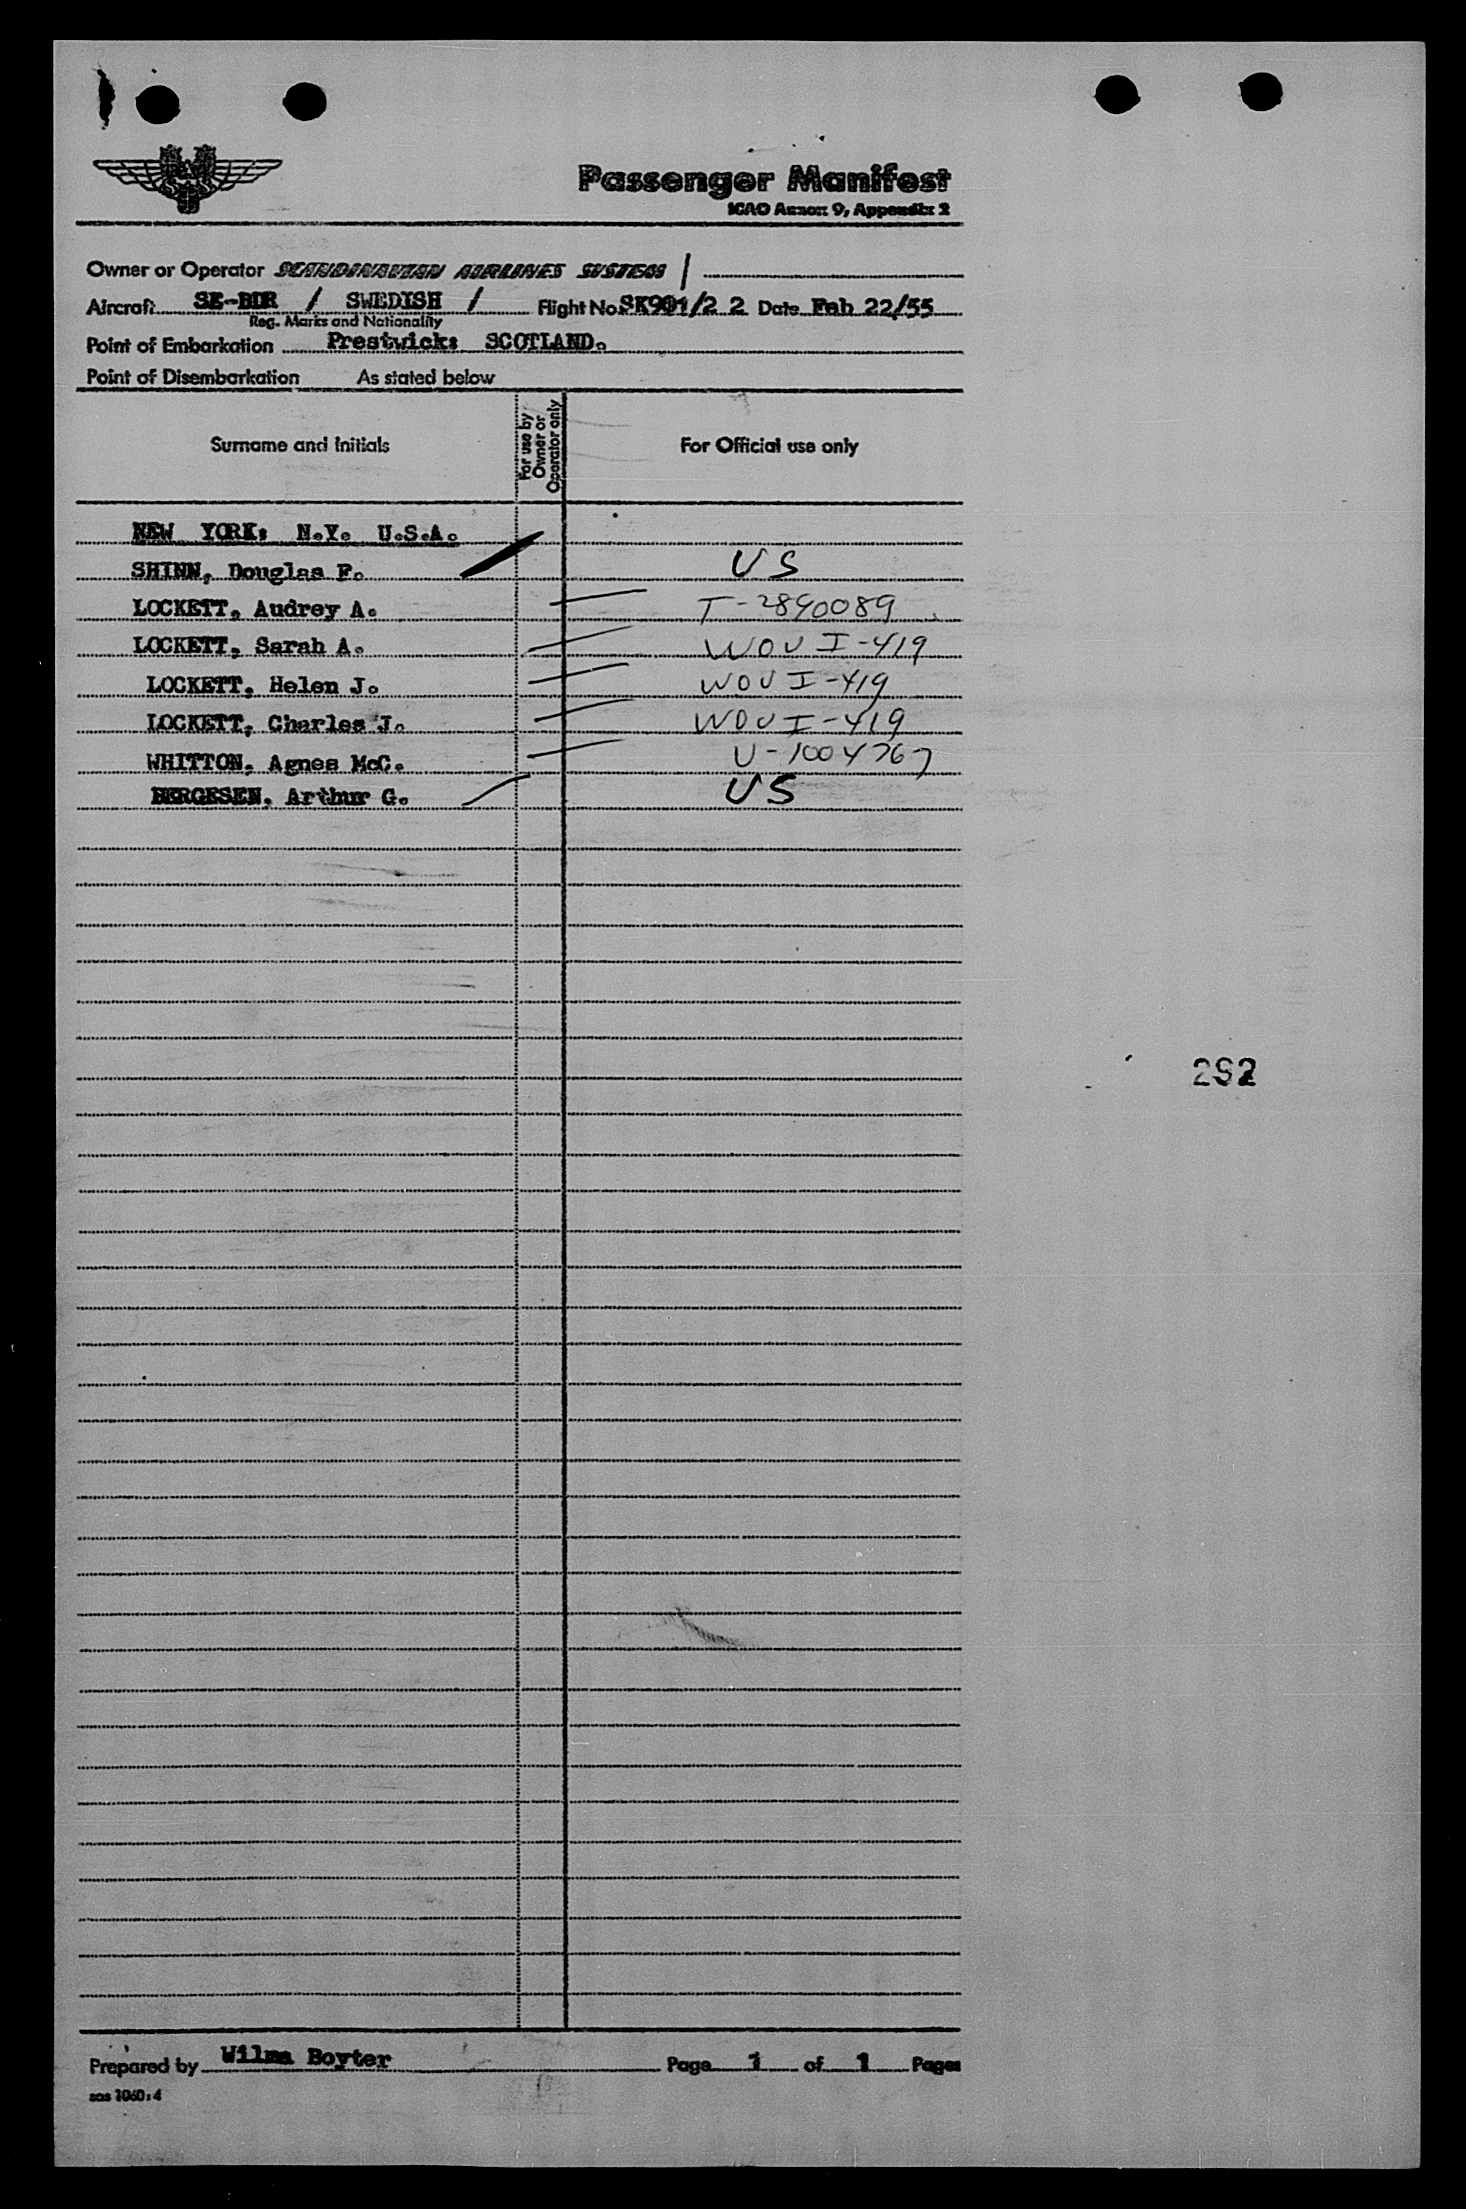 Passenger Manifest
ICAO Annex 9, Appendix 2
Owner or Operator SCANDINAVIAN AIRLINES SYSTEM /
Aircraft SE-BDR / SWEDISH / Flight No. SK901/2 2 Date Feb 22/55
Reg. Marks and Nationality
Point of Embarkation Prestwick: SCOTLAND.
Point of Disembarkation As stated below
Surname and Initials
For use by Owner or Operator only
For Official use only
NEW YORK: N.Y. U.S.A.
SHINN, Douglas F. US
LOCKETT, Audrey A. T-2890089
LOCKETT, Sarah A. WOU I-419
LOCKETT, Helen J. WOU I-419
LOCKETT, Charles J. WOU I-419
WHITTON, Agnes McC. U-1004767
BERGESEN, Arthur G. US
292
Prepared by Wilma Boyter Page 1 of 1 Pages
sas 1060:4